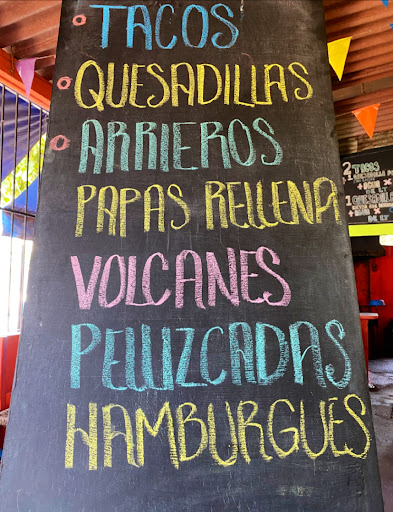 TACOS
QUESADILLAS
ARRIEROS
PAPAS RELLENA
VOLCANES
PELLIZCADAS
HAMBURGUÉS
2 TACOS